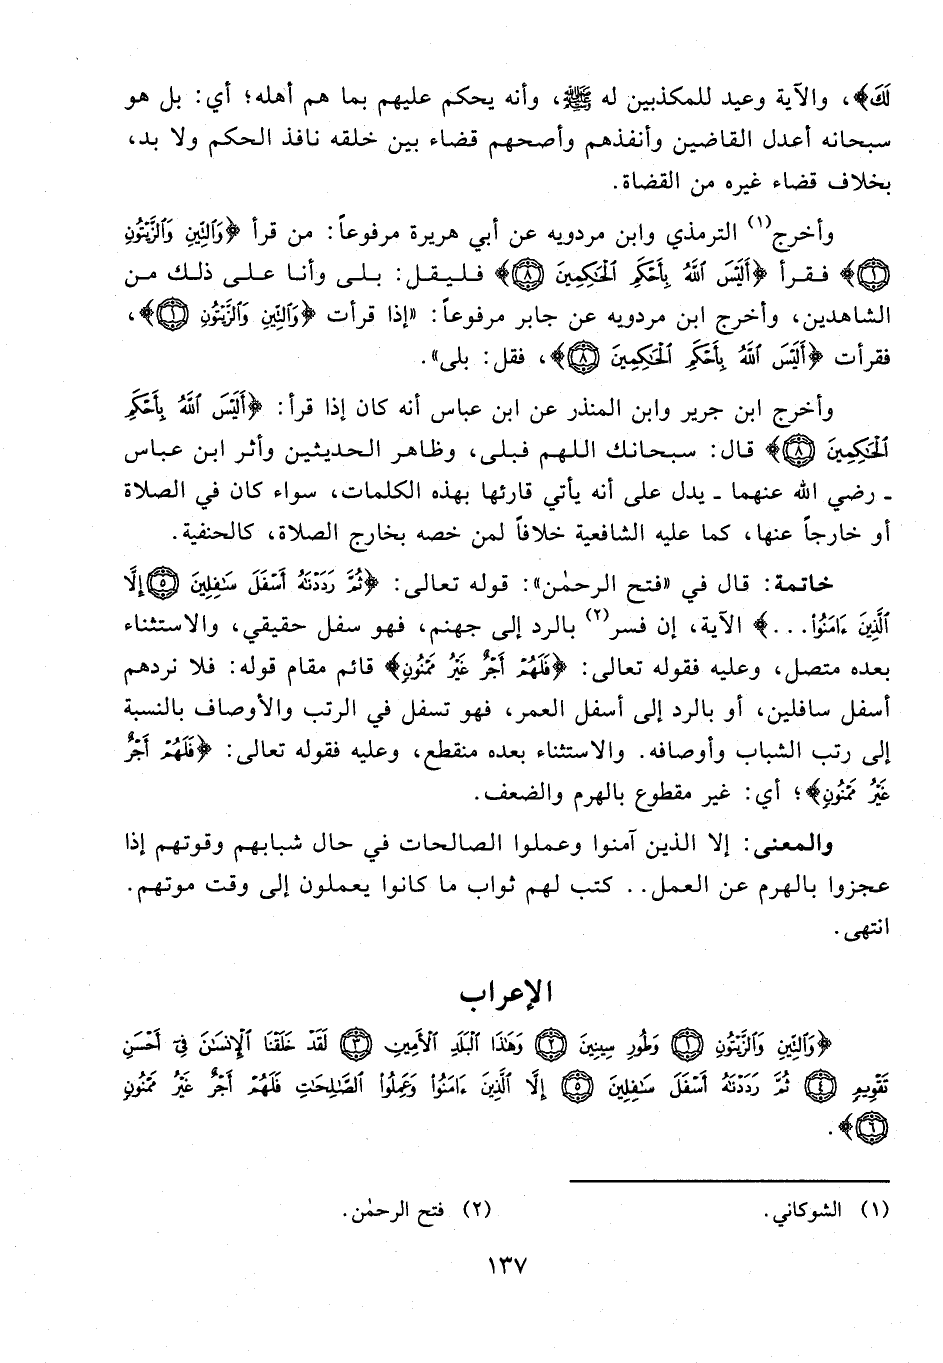 لَكَ﴾، والآية وعيد للمكذبين له ﷺ، وأنه يحكم عليهم بما هم أهله؛ أي: بل هو
سبحانه أعدل القاضين وأنفذهم وأصحهم قضاء بين خلقه نافذ الحكم ولا بد،
بخلاف قضاء غيره من القضاة.
وأخرج(١) الترمذي وابن مردويه عن أبي هريرة مرفوعاً: من قرأ ﴿وَٱلتِّينِ وَٱلزَّيْتُونِ
۝١﴾ فقرأ ﴿أَلَيْسَ ٱللَّهُ بِأَحْكَمِ ٱلْحَٰكِمِينَ ۝٨﴾ فليقل: بلى وأنا على ذلك من
الشاهدين، وأخرج ابن مردويه عن جابر مرفوعاً: «إذا قرأت ﴿وَٱلتِّينِ وَٱلزَّيْتُونِ ۝١﴾،
فقرأت ﴿أَلَيْسَ ٱللَّهُ بِأَحْكَمِ ٱلْحَٰكِمِينَ ۝٨﴾، فقل: بلى».
وأخرج ابن جرير وابن المنذر عن ابن عباس أنه كان إذا قرأ: ﴿أَلَيْسَ ٱللَّهُ بِأَحْكَمِ
ٱلْحَٰكِمِينَ ۝٨﴾ قال: سبحانك اللهم فبلى، وظاهر الحديثين وأثر ابن عباس
ـ رضي الله عنهما ـ يدل على أنه يأتي قارئها بهذه الكلمات، سواء كان في الصلاة
أو خارجاً عنها، كما عليه الشافعية خلافاً لمن خصه بخارج الصلاة، كالحنفية.
خاتمة: قال في «فتح الرحمٰن»: قوله تعالى: ﴿ثُمَّ رَدَدْنَٰهُ أَسْفَلَ سَٰفِلِينَ ۝٥ إِلَّا
ٱلَّذِينَ ءَامَنُوا۟...﴾ الآية، إن فسر(٢) بالرد إلى جهنم، فهو سفل حقيقي، والاستثناء
بعده متصل، وعليه فقوله تعالى: ﴿فَلَهُمْ أَجْرٌ غَيْرُ مَمْنُونٍ﴾ قائم مقام قوله: فلا نردهم
أسفل سافلين، أو بالرد إلى أسفل العمر، فهو تسفل في الرتب والأوصاف بالنسبة
إلى رتب الشباب وأوصافه. والاستثناء بعده منقطع، وعليه فقوله تعالى: ﴿فَلَهُمْ أَجْرٌ
غَيْرُ مَمْنُونٍ﴾؛ أي: غير مقطوع بالهرم والضعف.
والمعنى: إلا الذين آمنوا وعملوا الصالحات في حال شبابهم وقوتهم إذا
عجزوا بالهرم عن العمل.. كتب لهم ثواب ما كانوا يعملون إلى وقت موتهم.
انتهى.
الإعراب
﴿وَٱلتِّينِ وَٱلزَّيْتُونِ ۝١ وَطُورِ سِينِينَ ۝٢ وَهَٰذَا ٱلْبَلَدِ ٱلْأَمِينِ ۝٣ لَقَدْ خَلَقْنَا ٱلْإِنسَٰنَ فِىٓ أَحْسَنِ
تَقْوِيمٍ ۝٤ ثُمَّ رَدَدْنَٰهُ أَسْفَلَ سَٰفِلِينَ ۝٥ إِلَّا ٱلَّذِينَ ءَامَنُوا۟ وَعَمِلُوا۟ ٱلصَّٰلِحَٰتِ فَلَهُمْ أَجْرٌ غَيْرُ مَمْنُونٍ
۝٦﴾.
(١) الشوكاني. (٢) فتح الرحمٰن.
١٣٧